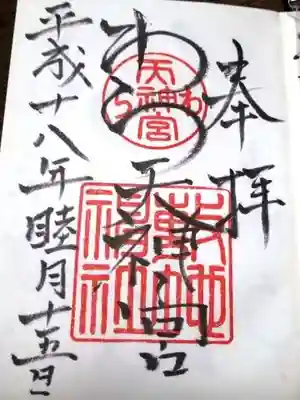 奉拝
わら天神宮
平成十八年睦月十五日
わら
天神宮
敷地
神社